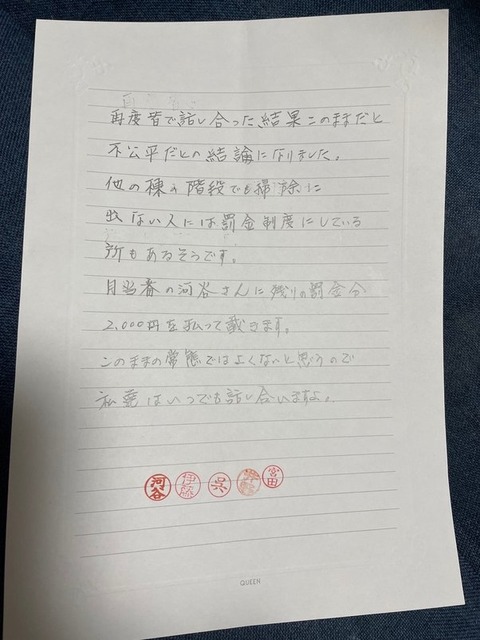 再度皆で話し合った結果このままだと
不公平だとの結論になりました。
他の棟の階段でも掃除に
出ない人には罰金制度にしている
所もあるそうです。
月当番の河谷さんに残りの罰金分
2,000円を払って戴きます。
このままの常態ではよくないと思うので
私共はいつでも話し合いますよ。
河谷 伊藤 呉 宮田
QUEEN